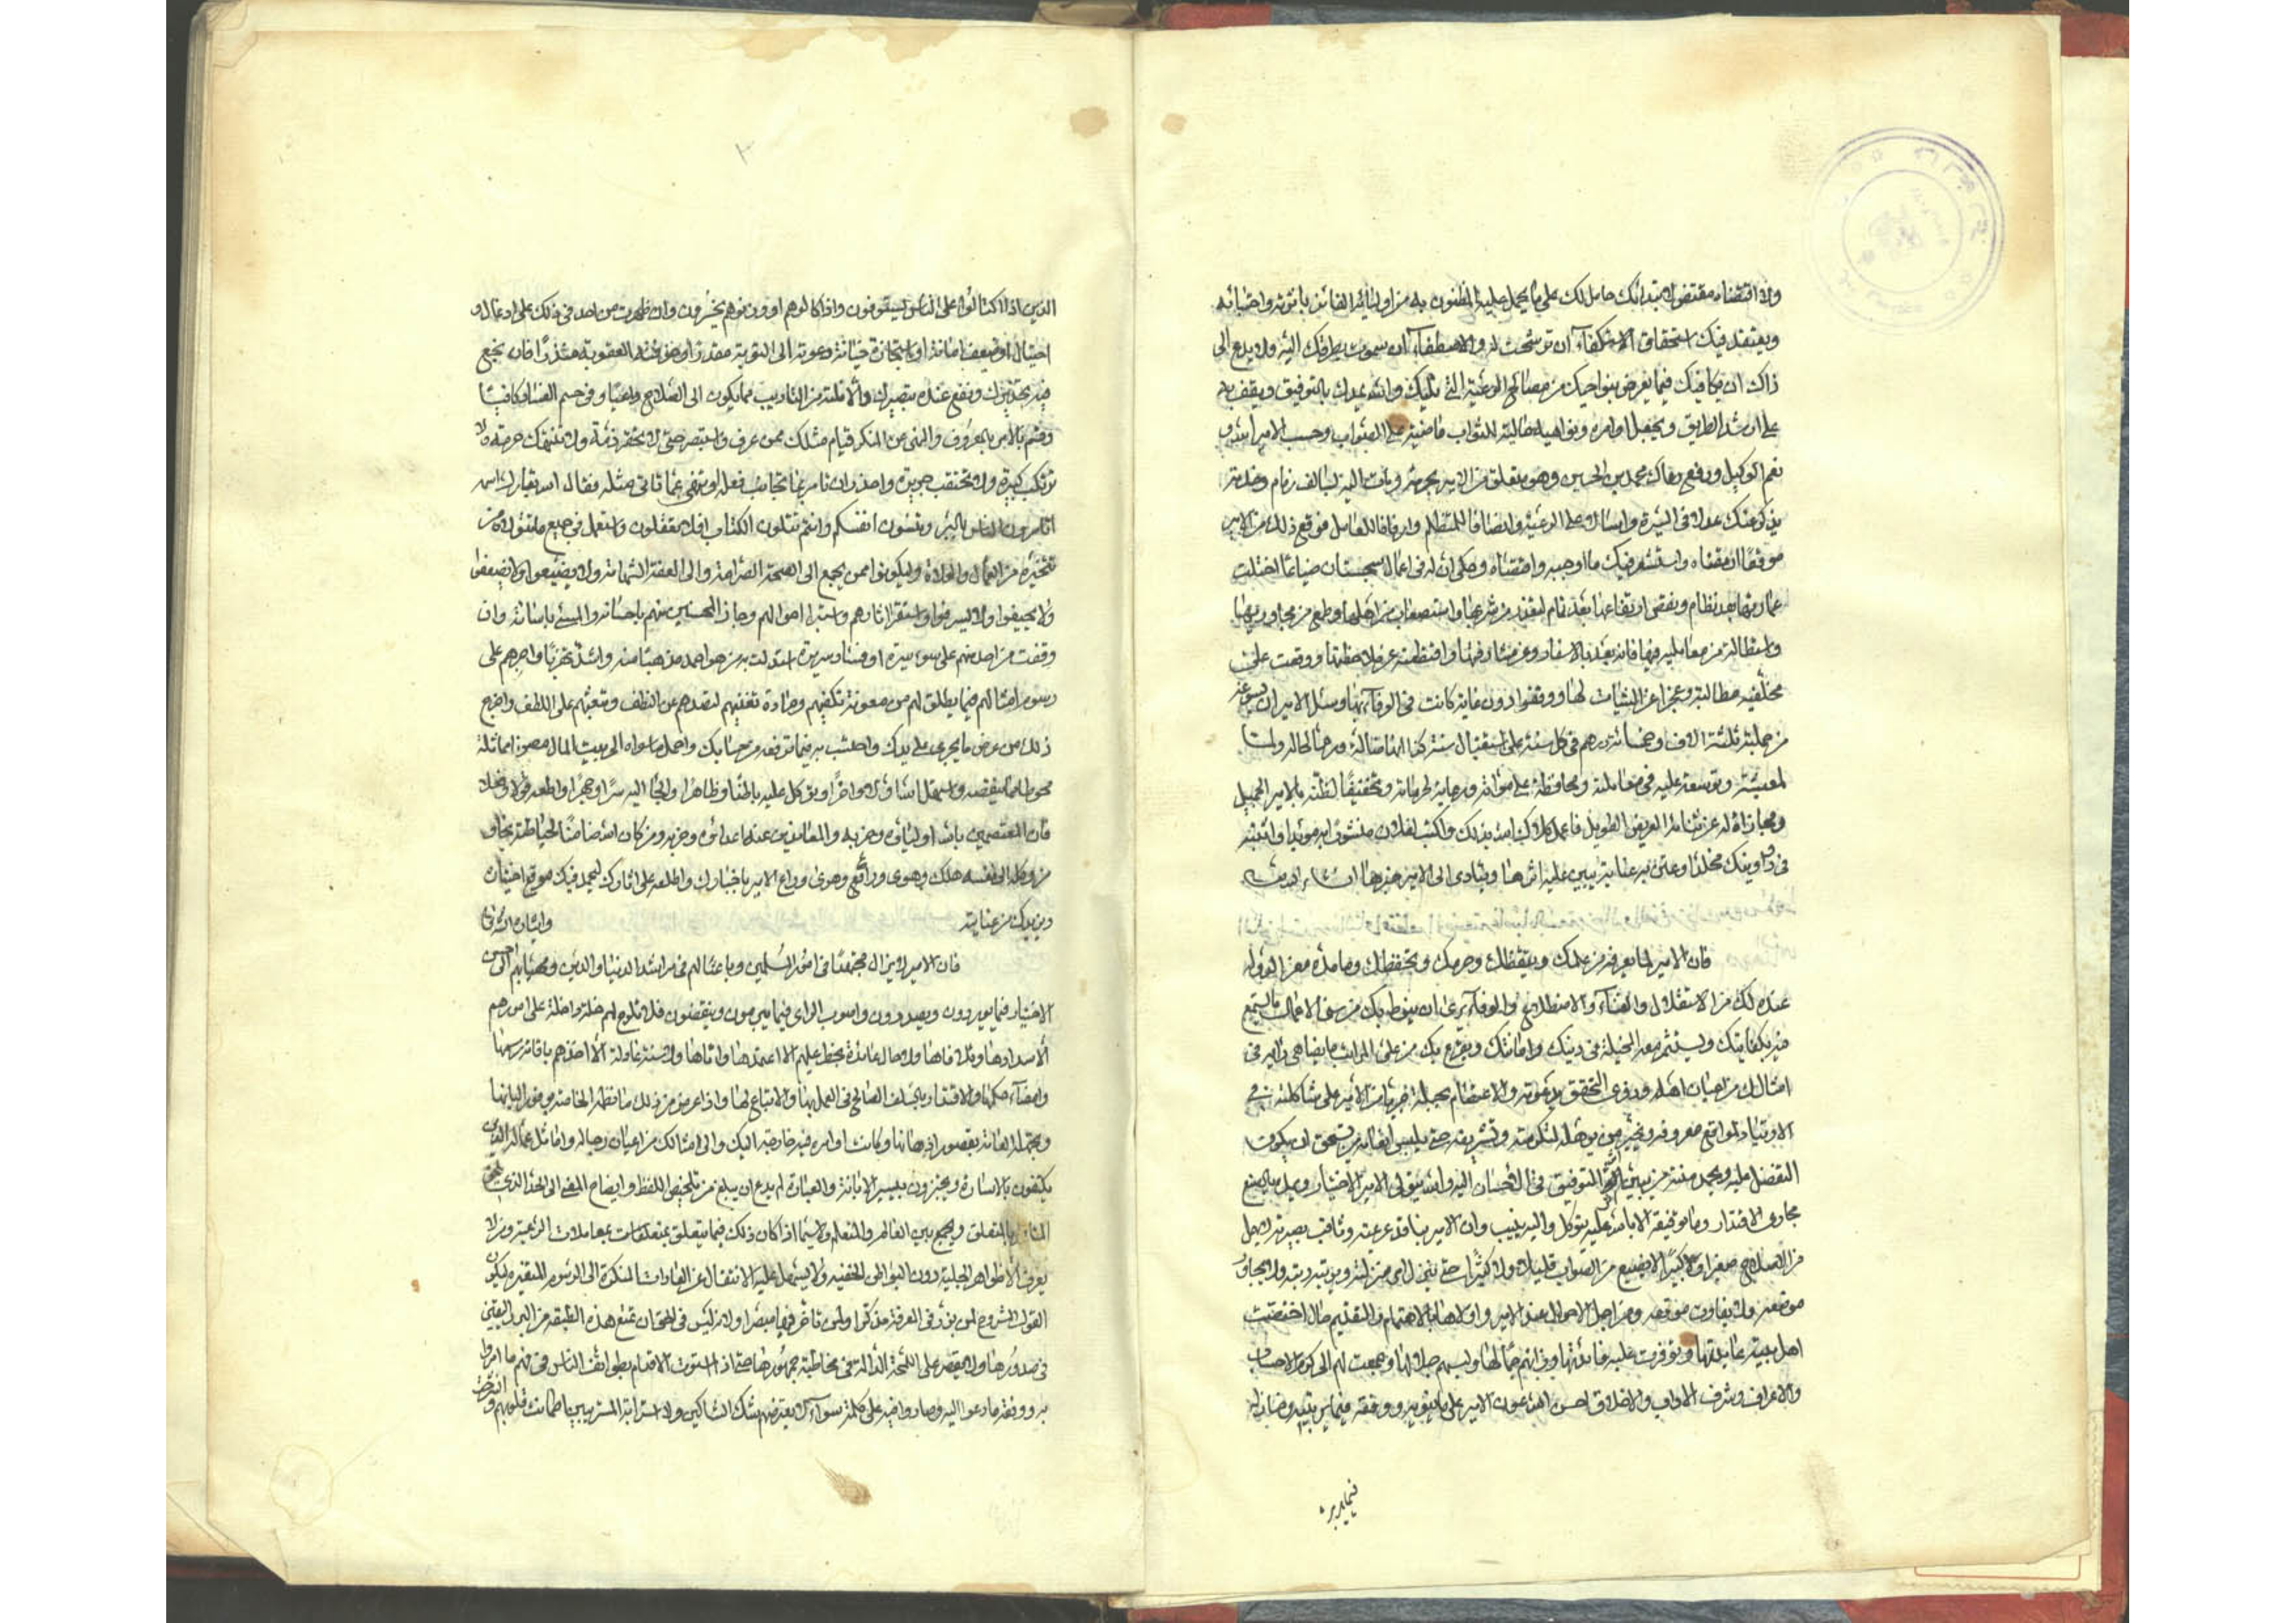 ولا اقتضاه مقتض لابتدائك حامل لك على ما يحمل عليه المظنون به من اوليائه الفائز باثرته واجتبائه
ويعتقد فيك استحقاق الاستكفاء ان ترشحت له والاصطفاء ان سموت بطرفك اليه ولا يدع الى
ذاك ان يكافيك فيما يعرض بنواحيك من مصالح الرعية التي تليك والله يمدك بالتوفيق ويقف به
على ارشد الطريق ويجعل اوامره ونواهيه جالبة للثواب ماضية على الصواب وحسب الامير الله و
نعم الوكيل ورفع محمد بن الحسين وهو متعلق من الامير بحرمة ومات اليه بسالف زمام وخدمة
يذكر عنك عدلا في السيرة واسبالا على الرعية وانصافا للمتظلم وارفاقا للعامل فوقع ذلك من الامير
موقعا وافقناه واستشعر فيك ما اوجبه واقتضاه وحكى ان له في اعمال سجستان ضياعا اختلت
عمارتها بعد نظام ونقص ارتفاعها بعد تمام لبعده من شرعها واستصعاب من اهلها وطمع من مجاوريها
واستطالة من معامليه فيها فانه بعد بالاسفار وعن مشارفتها واقتطعته عن ملاحظتها ووقعت على
مخلفيه مطالبة وعجزا عن الثبات لها ووقفوا دون غاية كانت في الوفاء بها وسئل الامير ان يسوغه
من جملته ثلثة الاف وخمسمائة درهم في كل سنة على استقبال سنة كذا
لمعيشته وتوسعة عليه في معاملته ومحافظة على مواته ورعاية لحرماته وتحقيقا لظنه بالامير الجميل
ومجازاة له عن ثنائه العريض الطويل فاعمل بذلك واكتب لفلان منشورا به مؤيدا واثبته
في دواوينك مخلدا وعن به عناية يبين عليه اثرها ويتادى الى الامير خبرها ان شاء الله
فان الامير لما يعرفه من علمك وتيقظك وحزمك وتحفظك وما مدة معز الدولة
عنده لك من الاستقلال والغناء والاضطلاع والوفاء يرى ان ينوط بك من سنى الاعمال ما يستمتع
فيه بكفايتك ويستثمر معه المخيلة في دينك وامانتك ويفرع بك من على المراتب ما يضاهي رايه في
امثالك من اعيان اهله وذوي التحقق بدعوته والاعتصام بحبله جريا من الامير على شاكلته في
الارتياد لمواقع معروفه وتخير من يؤهله لتكرمته وتشريفه حتى يلبس انعامه من يستحق ان يكون
التفضل عليه ويحمد منته من يبين اثر التوفيق في الاحسان اليه والله يتولى الامير الاختيار وعلى ما يصنع
مجاري الاقدار وما توفيقه الا بالله عليه يتوكل واليه ينيب وان الامير بنافذ عزيمته وثاقب بصيرته لا يهمل
من الصلاح صغيرا ولا كبيرا ولا يضيع من الصواب قليلا ولا كثيرا حتى ينزل كل امر منزلته ويرتبه رتبته ولا يجاوز
موضعه ولا يفاوت موقعه ومن اجل الاحوال عند الامير واولاها بالاهتمام والتقديم حال اختصت
اهل بيته عائدتها وتوفرت عليه فائدتها وزانهم جمالها ووسمهم جلالها وجمعت لهم الى كرم الاحساب
والاعراق وشرف الاداب والاخلاق احسن الله عون الامير على ما ينويه ووفقه فيما يرتئيه
فيما يدبره
الذين اذا اكتالوا على الناس يستوفون واذا كالوهم او وزنوهم يخسرون وان ظهرت من احد في ذلك على ادغال او
احتيال او تضييع امانة او استجازة خيانة دعوته الى التوبة مقدرا وخوفته العقوبة منذرا فان نجع
فيه تحذيرك ونفع عنده تبصيرك والا نلته من التاديب بما يكون الى الصلاح داعيا وفي حسم الفساد كافيا
وقم بالامر بالمعروف والنهى عن المنكر قيام مثلك ممن عرف واستبصر حتى لا تخفر ذمة ولا تنتهك حرمة ولا
ترتكب كبيرة ولا تحتقب جريرة واحذر ان تامر بما تجانب فعله او تنهى عما تاتي مثله فقال الله تبارك اسمه
اتامرون الناس بالبر وتنسون انفسكم وانتم تتلون الكتاب افلا تعقلون واستعمل في جميع ما تتولاه من
تتخيره من العمال والولاة وليكونوا ممن يجمع الى الصحة الصرامة والى العفة الشهامة ولا يضيعوا ولا يضعفوا
ولا يحيفوا ولا يسرفوا واستقر اثارهم واستبر احوالهم وجاز المحسنين منهم باحسانه والمسئ باساءته وان
وقفت من احد منهم على سوء سيرة او فساد سريرة استدلت به من هو احمد مذهبا منه واشد تحريا واجرهم على
رسوم امثالهم فيما يطلق لهم من معونة تكفيهم ومادة تغنيهم لتصدهم عن النطف وتبعثهم على اللطف واخرج
ذلك من عرض ما يجري على يدك واحتسب به فيما ترفعه من حسابك واحمل ما سواه الى بيت المال مصونا مما ثلمه
محوطا مما ينقصه واستقل الله اولا واخرا وتوكل عليه باطنا وظاهرا والجا اليه سرا وجهرا واطعه قولا وفعلا
فان المعتصمين بالله اولياؤه وحزبه والمعاندين عنه اعداؤه وحربه ومن كان الله ضامنا لحياطته نجا و
من وكله الى نفسه هلك وهوى وراع الامير باخبارك واطلعه على اثارك ليحمد فيك موقع اختياره
ويزيدك من عنايته وايثاره ان شاء الله
فان الامير لا يزال مجتهدا في امور المسلمين وباعثا لهم في مراشد الدنيا والدين ومهيبا بهم الى احسن
الاختيار فيما يوردون ويصدرون واصوب الراي فيما يبرمون وينقضون فلا تلوح لهم خلة داخلة على امرهم
الا سدادها وتلافاها ولا حال عائدة بحظ عليهم الا اعتمدها واتاها ولا سنة عادلة الا اخذهم باقامة رسمها
وامضاء حكمها والاقتداء بالسلف الصالح في العمل بها والاتباع لها واذا عرض من ذلك ما تعلمه الخاصة بوفور البابها
وتجهله العامة بقصور اذهانها وكانت اوامره فيه خارجة اليك والى امثالك من اعيان رجاله واماثل عماله الذين
يكتفون بالاشارة ويجتزون بيسير الابانة والعبارة لم يدع ان يبلغ من تلخيص اللفظ وايضاح المعنى الى الحد الذي يلحق
المتاخر بالمتقدم ويجمع بين العالم والمتعلم ولا سيما اذا كان ذلك فيما يتعلق بمتعلقات بمعاملات الرعية ومن لا
يعرف الا الظواهر الجلية دون البواطن الخفية ولا يسهل عليه الانتقال عن العادات المنكرة الى الرسوم المتغيرة ليكون
القول المشروح لمن برز في المعرفة مذكرا ولمن تاخر فيها مبصرا ولانه ليس في الحق ان تمنع هذه الطبقة من البرد اليقين
في صدورها ولا يقتصر على اللمحة الدالة في مخاطبة جمهورها حتى اذا استوت الاقدام بطوائف الناس في فهم ما امروا
به ووفقه ما دعوا اليه وصاروا فيه على كلمة سواء لا يعترضهم شك الشاكين ولا استرابة المستريبين اطمانت قلوبهم وانشرحت